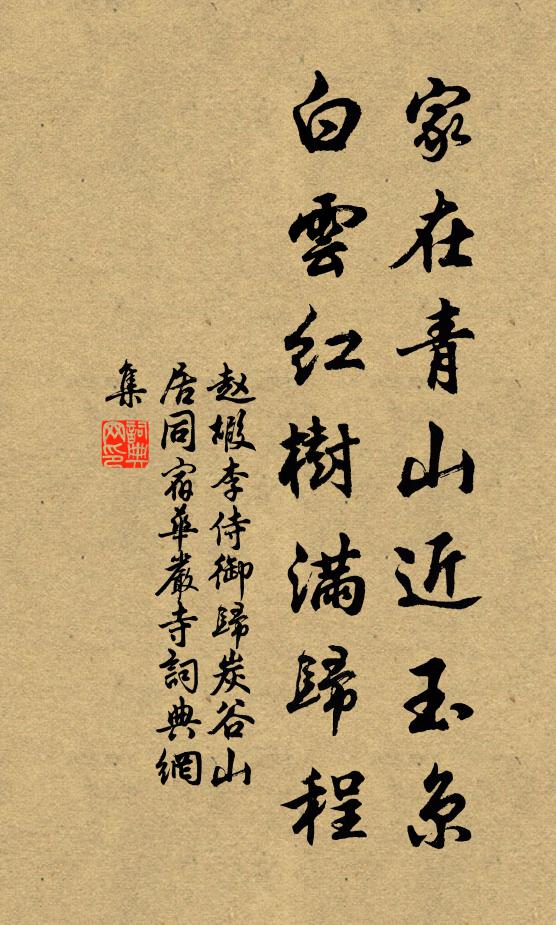 家在青山近玉京
白雲紅樹滿歸程
赵嘏李侍御歸炭谷山
居同宿華嚴寺詞典網
集
詞典網印